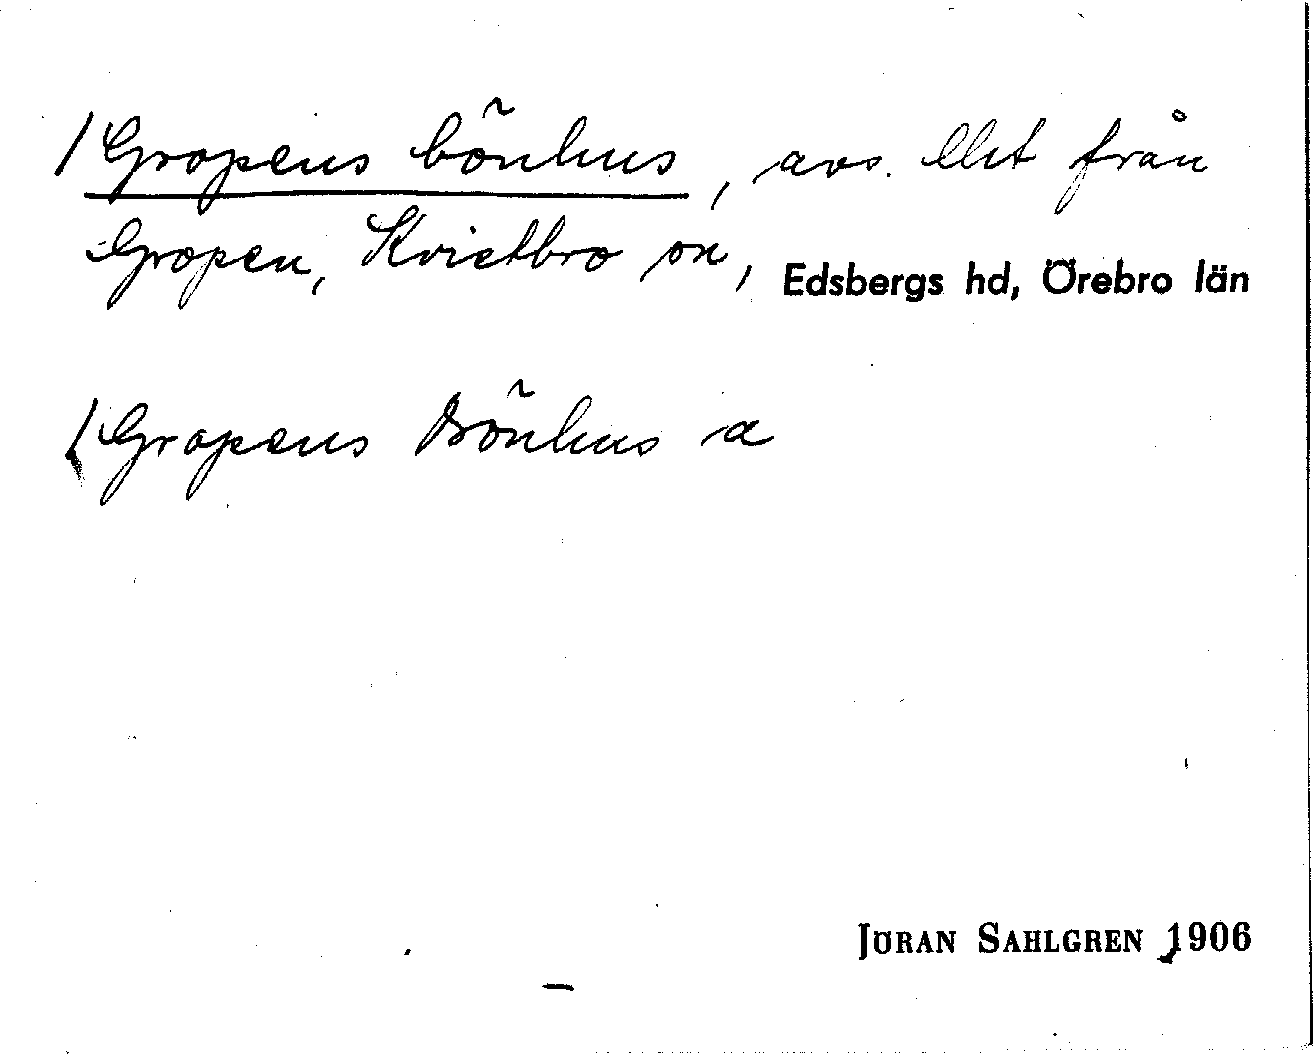 / Gropens bönhus, avs. lht från
Gropen, Kvistbro sn, Edsbergs hd, Örebro län
/ Gropens Bönhus a
JÖRAN SAHLGREN 1906